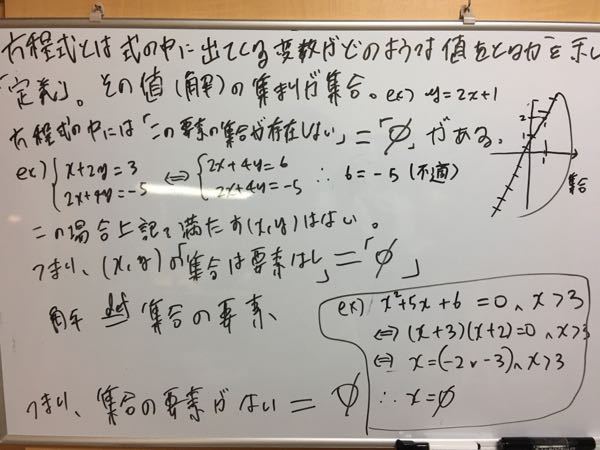 方程式とは式の中に出てくる変数がどのような値をとるかを示し
「定義」。その値(解)の集まりが集合。ex) y=2x+1
方程式の中には「この要素の集合が存在しない」=「∅」がある。
ex) { x+2y=3 ⇔ { 2x+4y=6 ∴ 6=-5 (不適)
2x+4y=-5 2x+4y=-5
この場合上記で満たす(x,y)はない。
つまり、(x,y)の「集合は要素はし」=「∅」
解 def 集合の要素
つまり、集合の要素がない = ∅
2
1
1
集合
ex) x²+5x+6=0 ∧ x>3
⇔ (x+3)(x+2)=0 ∧ x>3
⇔ x=(-2 ∨ -3) ∧ x>3
∴ x=∅